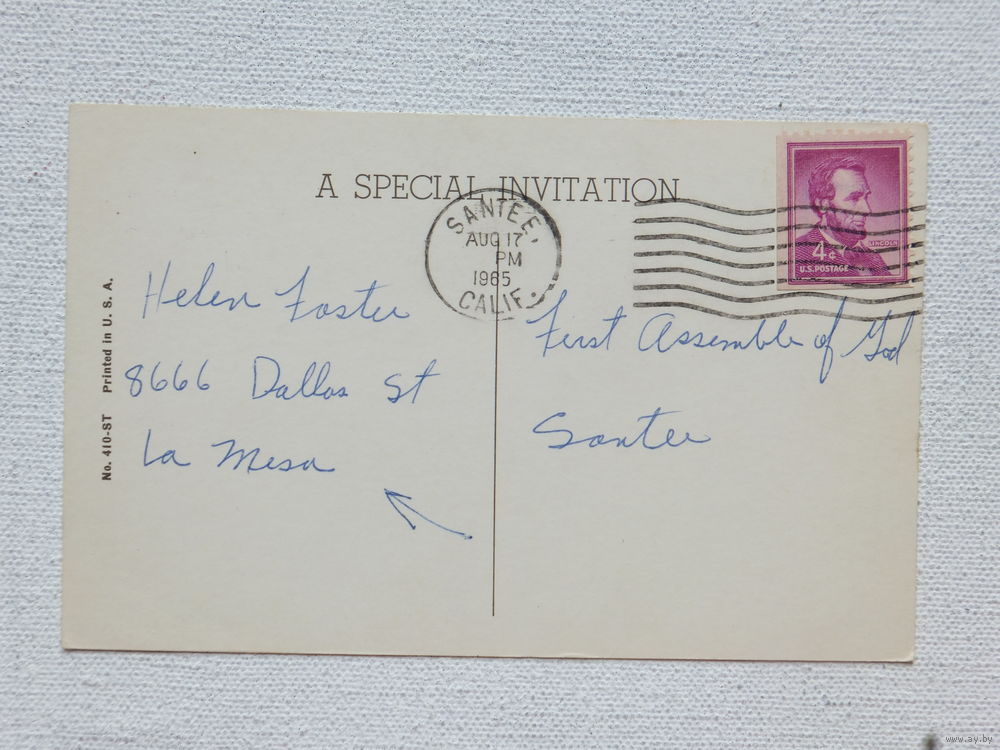 A SPECIAL INVITATION
SANTEE,
AUG 17
PM
1965
CALIF.
4¢
LINCOLN
U.S. POSTAGE
No. 410-ST Printed in U. S. A.
Helen Foster
8666 Dallas St
La Mesa
First Assemble of God
Santee
www.ay.by